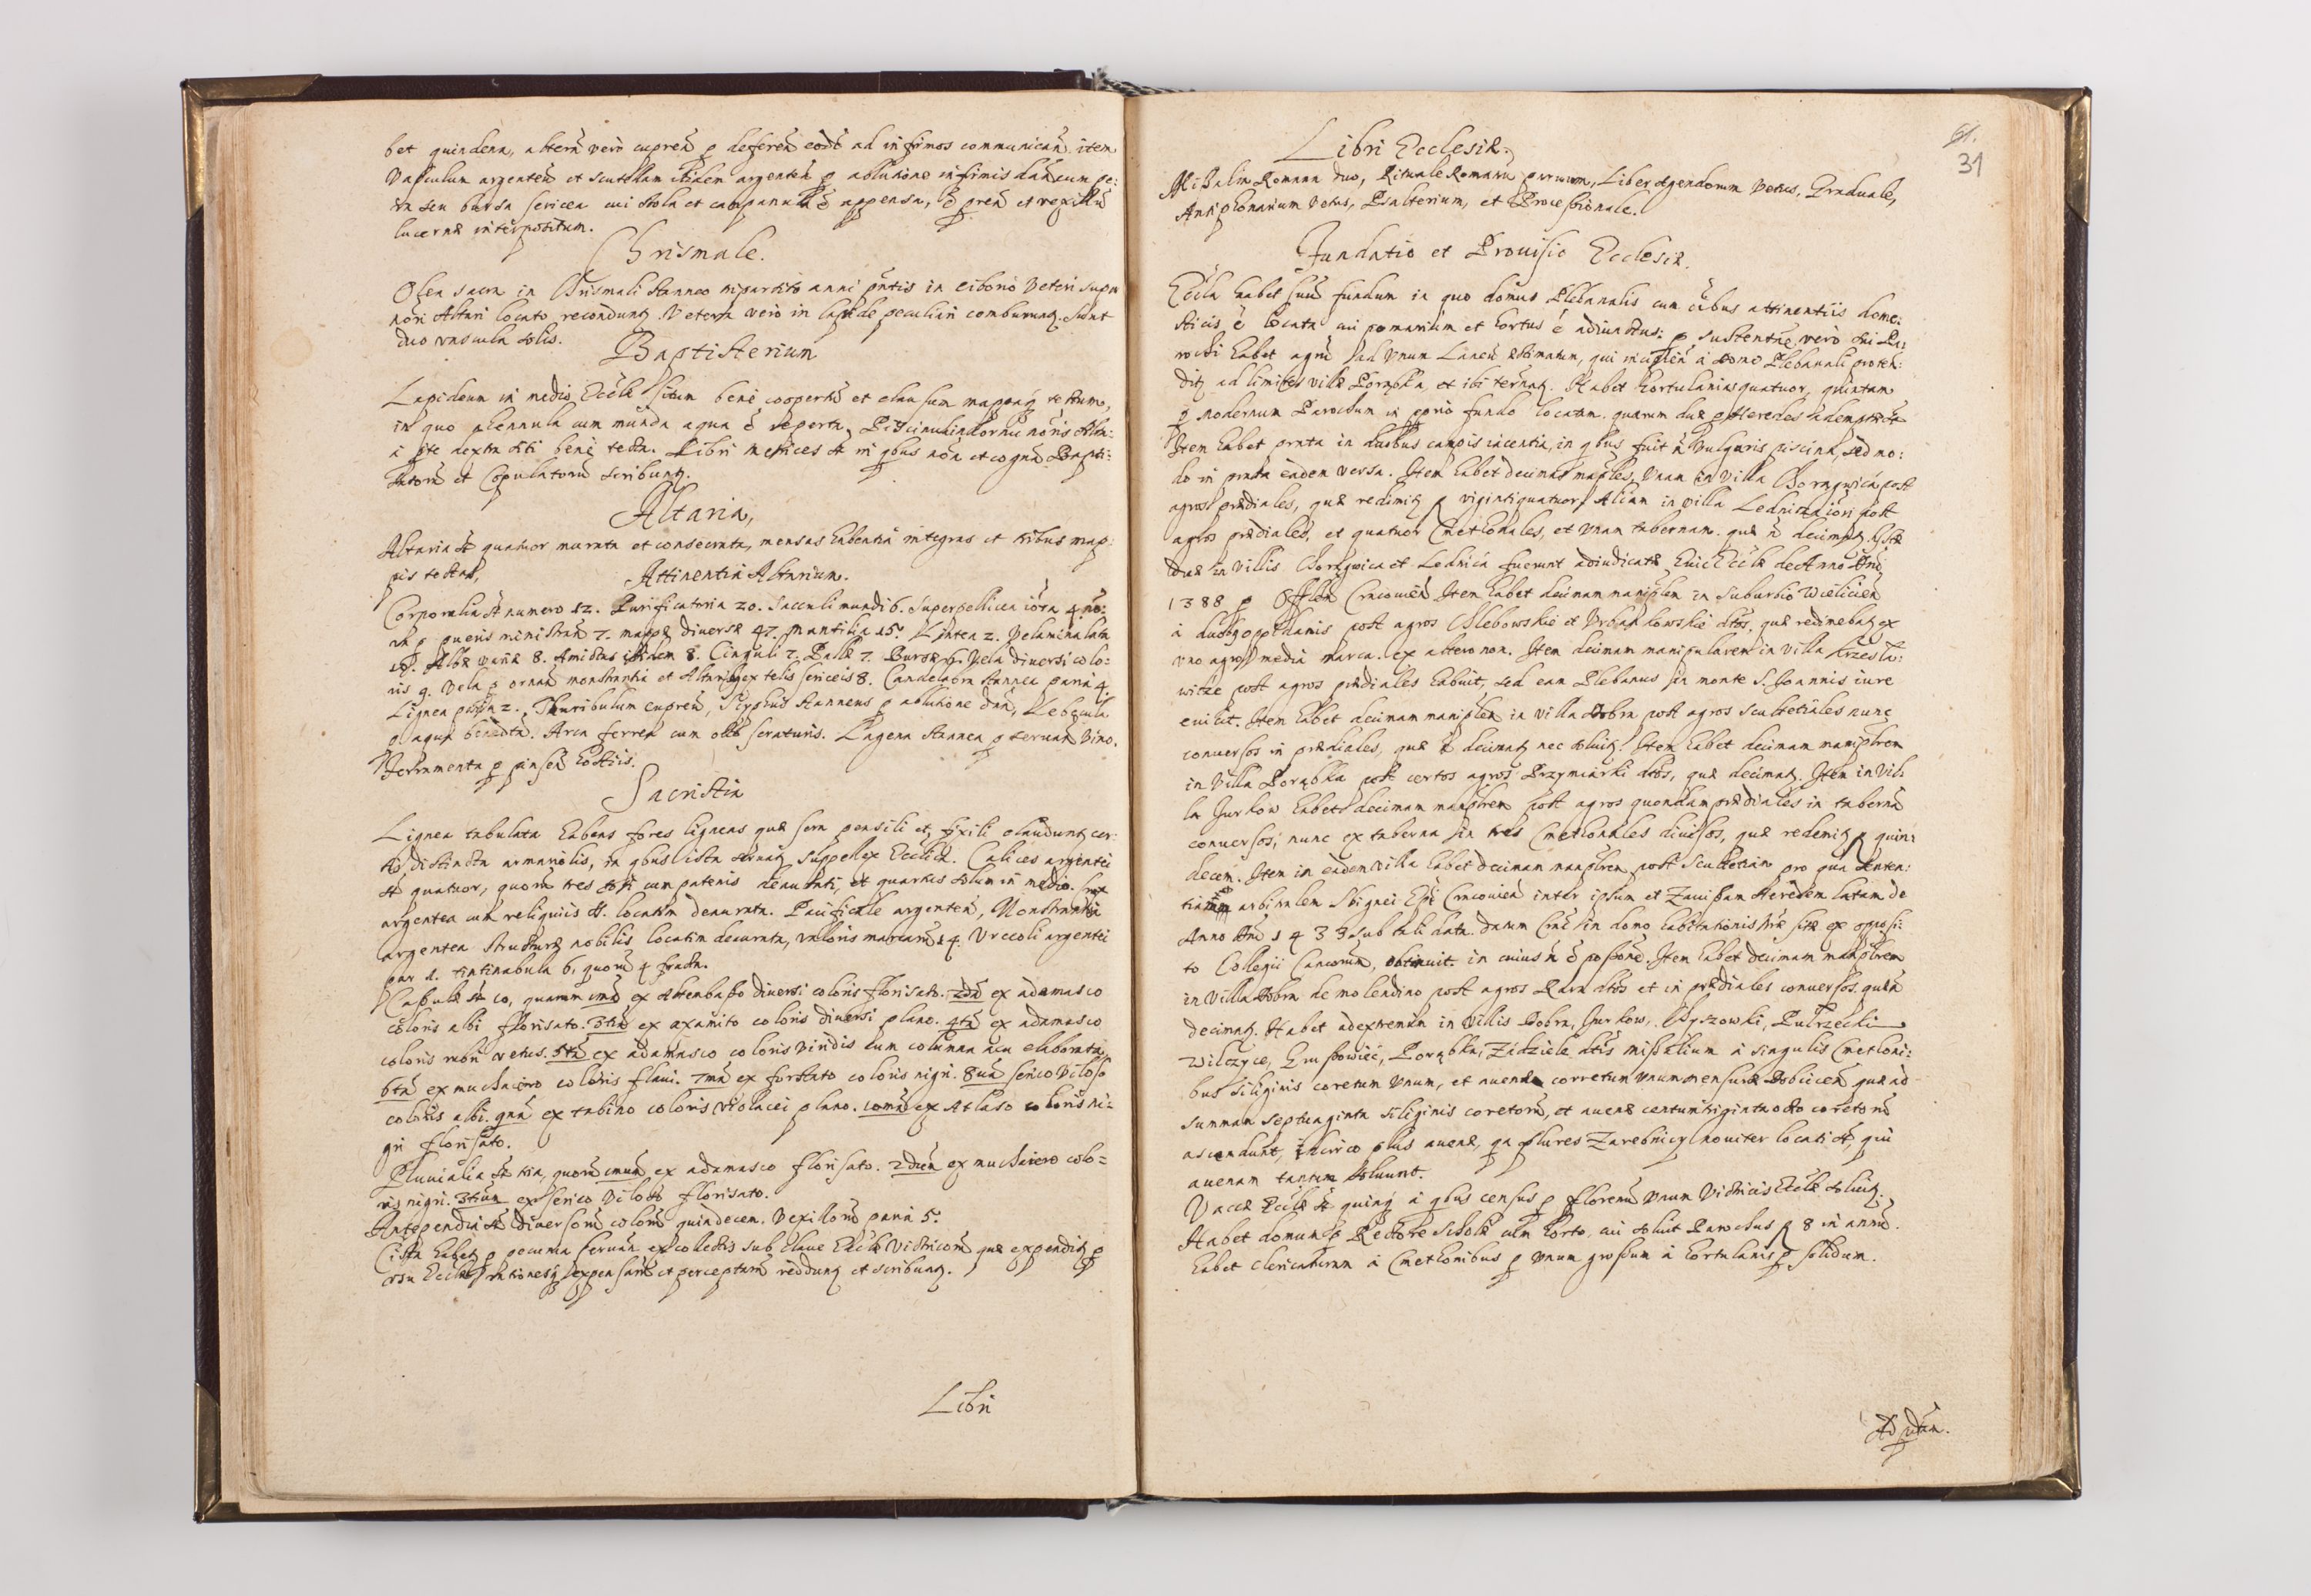 bet quindena, alterũ verò cupreũ ꝑ deferen̄ eodē ad infirmos communican̄. item
Vasculum argenteũ et scutellam itidem argenteã ꝑ ablutione infirmis dan̄ cum pe:
ra seu bursa sericea cui stola et campanula ẽ appensa,
lucernæ interpositum.
Chrismale.
Olea sacra in Chrismali stanneo tripartito anni pñtis in ciborio veteri supra
nori Altari locato reconduntʒ. Vetera verò in lapide peculiari comburuntʒ. sunt
duo vascula solis.
Baptisterium
Lapideum in medio Eccłæ situm benè coopertũ et clausum mappaqʒ tectum,
in quo phennula cum munda aqua ẽ reperta,
à pte dextra siti benè tecta. Libri metrices st̃ in qbus noīa et cognoīa Bapti:
satorũ et Copulatorũ scribuntʒ.
Altaria,
Altaria st̃ quatuor murata et consecrata, mensas habentia integras et tribus map:
pis tectas,
Attinentia Altarium.
Corporalia st̃ numero 12. Purificatoria 20. Sacculi mundi 6. Superpellicea 4
ꝑ pueris ministran̄ 7. mappæ diversæ 47. Mantilia 15. Lintea 2. Velamina lata
Albæ 8. Amictus itidem 8. Cinguli 7. Pallæ 7. Bursæ Vela diversi colo:
ris 9. Vela ꝑ ornan̄ monstrantia et Altaribʒ ex telis sericeis 8. Candelabra stannea paria 4.
Lignea paria 2. Thuribulum cupreũ, Scyphus stanneus ꝑ ablutione dan̄, Lebecula
ꝑ aqua bñdcta. Arca ferrea cum seraturis. Lagena stannea ꝑ servan̄ vino.
Ferramenta ꝑ pinsen̄ hostiis.
Sacristia
Lignea tabulata habens fores ligneas quæ sera pensili et fixili clauduntʒ cer:
tis distincta armariolis, in qbus ista servatʒ suppellex Ecclicæ. Calices argentei
st̃ quatuor, quorũ tres toti cum patenis deaurati, et quartus solum in medio. Crux
argentea cum reliquiis SS. locatim deaurata. Pacificale argenteũ, Monstrantia
argentea structuræ nobilis locatim deaurata, valoris marcarũ 14. Urceoli argentei
par 1. tintinabula 6, quorũ 4 fracta.
Casulæ st̃ 10, quarum 1ma ex Altembasso diversi coloris florisato. 2da ex adamasco
coloris albi florisato. 3tia ex axamito coloris diversi plano. 4ta ex adamasco
coloris rubri vetus. 5ta ex adamasco coloris viridis cum columna acu elaborata,
6ta ex muchaiero coloris flavi. 7ma ex forstato coloris nigri. 8va serico viloso
coloris albi. 9na ex tabino coloris violacei plano. 10ma ex Atlaso coloris ni=
gri florisato.
Pluvialia st̃ tria, quorũ 1mum ex adamasco florisato. 2dum ex muchaiero colo=
ris nigri. 3tium ex serico viloso florisato.
Antependia st̃ diversorũ colorũ quindecem. Vexillorũ paria 5.
Cista habetʒ ꝑ pecunia servan̄ ex collectis sub clave Eccłæ Victricorũ quæ expenditʒ ꝑ
usu Eccłæ, rationesqʒ expensarũ et perceptarũ redduntʒ et scribuntʒ.
Libri
61.
31
Libri Ecclesiæ.
Missalia Romana duo, Rituale Romanũ parvum, Liber Agendorum vetus, Graduale,
Antiphonarium vetus, Psalterium, et Processionale.
Fundatio et Provisio Ecclesiæ.
Eccła habet suũ fundum in quo domus Plebanalis cum oĩbus attinentiis dome:
sticis ẽ locata cui pomarium et hortus ẽ adiunctus: ꝑ sustentñe verò sui Pa:
rochi habet agrũ ad unum Laneũ æstimatum, qui incipien̄ à domo Plebanali proten:
ditʒ ad limites villæ Porąbka, et ibi ternatʒ. Habet hortulanias quatuor, quintam
ꝑ modernum Parochum in pprio fundo locatam. quarum duæ ꝑ Heredes ademptæ st̃
Item habet prata in duobus campis iacentia, in qbus fuit vulgaris piscina, sed mo:
do in prata eadem versa. Item habet decimas maples, Unam in Villa Choragwica post
agros prædiales, quæ redimitʒ ꝑ viginti quatuor, Aliam in villa Lednica post
agros prædiales, et quatuor Cmethonales, et unam tabernam. quæ ñ decimatʒ. Istæ
duæ in villis Choragwica et Lednica fuerunt adiudicatæ huic Eccłæ de Anno Dñi
1388 ꝑ Offlem Cracovien̄ Item habet decimam manplem in suburbio Wielicien̄
à duobʒ oppidanis post agros Chlebowskie et Urbankowskie dtos, quæ redimebatʒ ex
uno agro media marca. ex altero non. Item decimam manipularem in villa Krzesła:
wice post agros prædiales habuit, sed eam Plebanus in monte S. Joannis iure
evicit. Item habet decimam manplem in villa Dobra post agros scultetiales nunc
conversos in prædiales, quæ ñ decimatʒ nec solvitʒ. Item habet decimam manplem
in villa Porąbka post certos agros Przymiarki dtos, quæ decimatʒ. Item in vil:
la Jurkow habet decimam manplem post agros quondam prædiales in tabernã
conversos, nunc ex taberna in tres Cmethonales divisos, quæ redemitʒ ꝑ quin:
decem. Item in eadem villa habet decimam manplem post Scultetiam pro qua senten:
tiam arbitralem Sbignei Epi Cracovien̄ inter ipsum et Zavissam Heredem latam de
Anno Dñi 1433 sub tali data. datum Crac in domo habitationis nræ sitæ ex opposi:
to Collegii Canonum, obtinuit. in cuius ñ ẽ possone. Item habet decimam manplem
in villa Dobra de molendino post agros Rara dtos et in prædiales conversos. quæ ñ
decimatʒ. Habet ad extremum in villis Dobra, Jurkow, Chyszowki, Pułrzecki
Wilczyce, Gruszowiec, Porąbka, Zadziele dtis missalium à singulis Cmethoni:
bus siliginis coretum unum, et avenæ corretum unum mensuræ Dobcicen̄ quæ ad
summam septuaginta siliginis coretorũ, et avenæ centum triginta octo coretorũ
ascendunt, plus avenæ, qa plures Zarebnicy noviter locati st̃, qui
avenam tantum solvunt.
Vaccæ Eccłæ st̃ quinqʒ à qbus census ꝑ florenũ unum Victricis Eccłæ solvitʒ.
Habet domum ꝑ Rectore Scholæ cum horto, cui solvit Parochus 8 in annũ.
habet clericaturam à Cmethonibus ꝑ unum grossum à hortulanis ꝑ solidum.